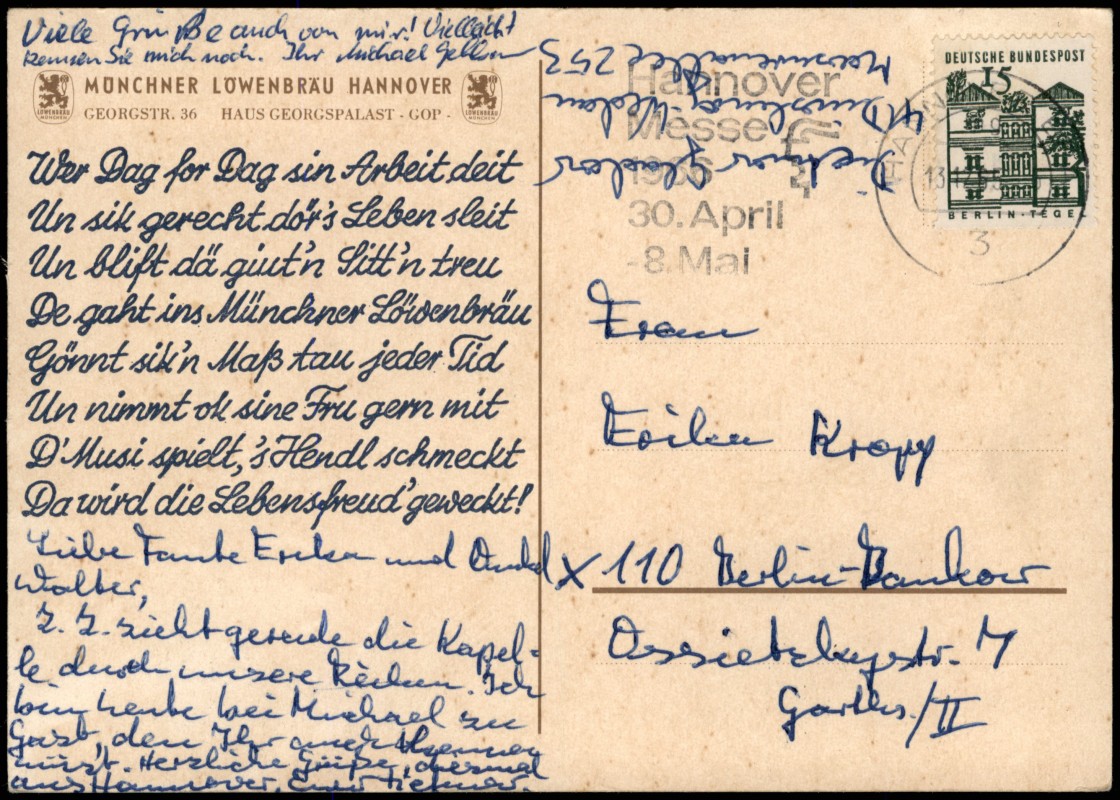 Viele Grüße auch von mir! Vielleicht
kennen Sie mich noch. Ihr Michael
MÜNCHNER LÖWENBRÄU HANNOVER
GEORGSTR. 36 HAUS GEORGSPALAST - GOP -
LÖWENBRÄU
MÜNCHEN
LÖWENBRÄU
MÜNCHEN
Wer Dag for Dag sin Arbeit deit
Un sik gerecht dör's Leben sleit
Un blift dä giut'n Sitt'n treu
De gaht ins Münchner Löwenbräu
Gönnt sik'n Maß tau jeder Tid
Un nimmt ok sine Fru gern mit
D'Musi spielt,'s Hendl schmeckt
Da wird die Lebensfreud' geweckt!
Liebe Tante Erika und Onkel
Walter,
Z. Z. zieht gerade die Kapel-
le durch unsere Reihen. Ich
bin heute bei Michael zu
Gast, den Ihr auch kennen
müßt. Herzliche Grüße, diesmal
aus Hannover, Euer Dietmar.
Dietmar
41 Duisburg-
253
Hannover
Messe
1966
30. April
-8. Mai
DEUTSCHE BUNDESPOST
15
BERLIN-TEGEL
HANNOVER
3
Frau
Erika Kropp
X 110 Berlin-Pankow
Ossietzkystr. 7
Garths./II